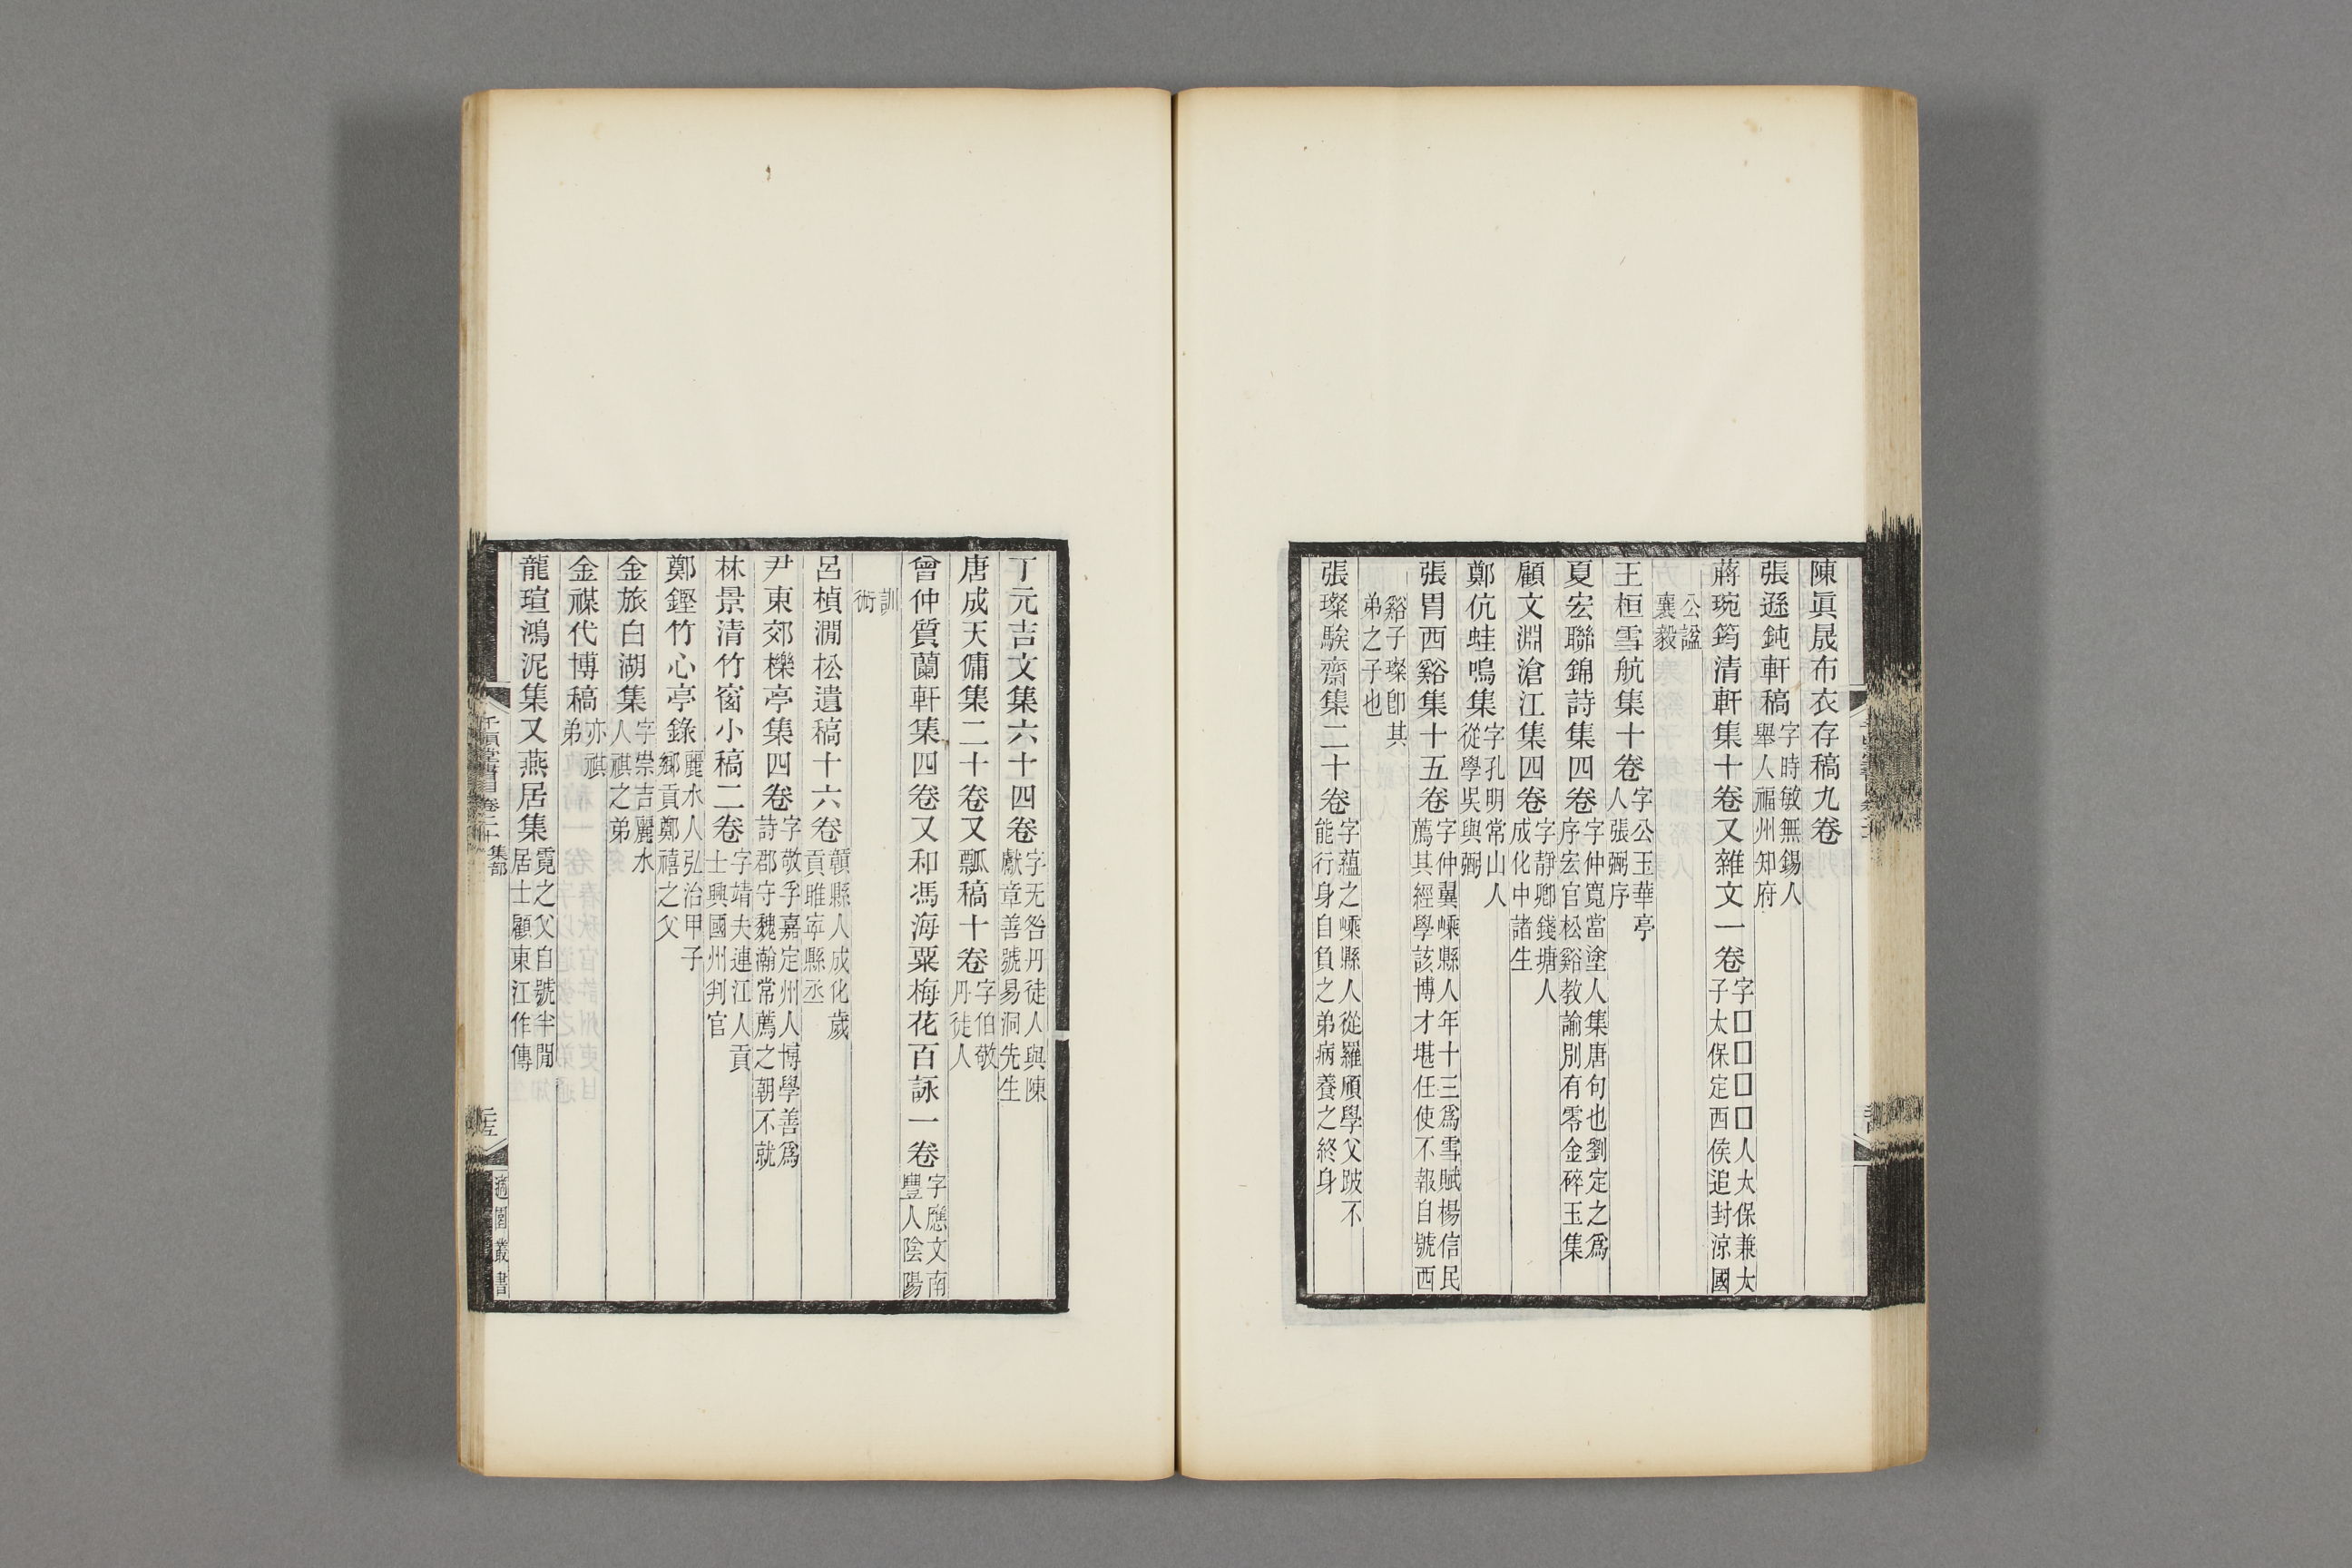 陳眞晟布衣存稿九卷
張遜鈍軒稿字時敏無錫人舉人福州知府
蔣琬筠清軒集十卷又雜文一卷字□□□□人太保兼太子太保定西侯追封涼國
公諡襄毅
王桓雪航集十卷字公玉華亭人張弼序
夏宏聯錦詩集四卷字仲寬當塗人集唐句也劉定之爲序宏官松谿教諭別有零金碎玉集
顧文淵滄江集四卷字靜卿錢塘人成化中諸生
鄭伉蛙鳴集字孔明常山人從學吳與弼
張胃西谿集十五卷字仲翼嵊縣人年十三爲雪賦楊信民薦其經學該博才堪任使不報自號西
谿子璨卽其弟之子也
張璨騃齋集二十卷字蘊之嵊縣人從羅頎學父跛不能行身自負之弟病養之終身
丁元吉文集六十四卷字无咎丹徒人與陳獻章善號易洞先生
唐成天傭集二十卷又瓢稿十卷字伯敬丹徒人
曾仲質蘭軒集四卷又和馮海粟梅花百詠一卷字應文南豐人陰陽
訓術
呂楨澗松遺稿十六卷贛縣人成化歲貢睢寧縣丞
尹東郊櫟亭集四卷字敬孚嘉定州人博學善爲詩郡守魏瀚常薦之朝不就
林景清竹窗小稿二卷字靖夫連江人貢士興國州判官
鄭鏗竹心亭錄麗水人弘治甲子鄉貢鄭禧之父
金旅白湖集字崇吉麗水人祺之弟
金禖代博稿亦祺弟
龍瑄鴻泥集又燕居集霓之父自號半閒居士顧東江作傳
千頃堂書目卷二十 集部
二十五
適園叢書